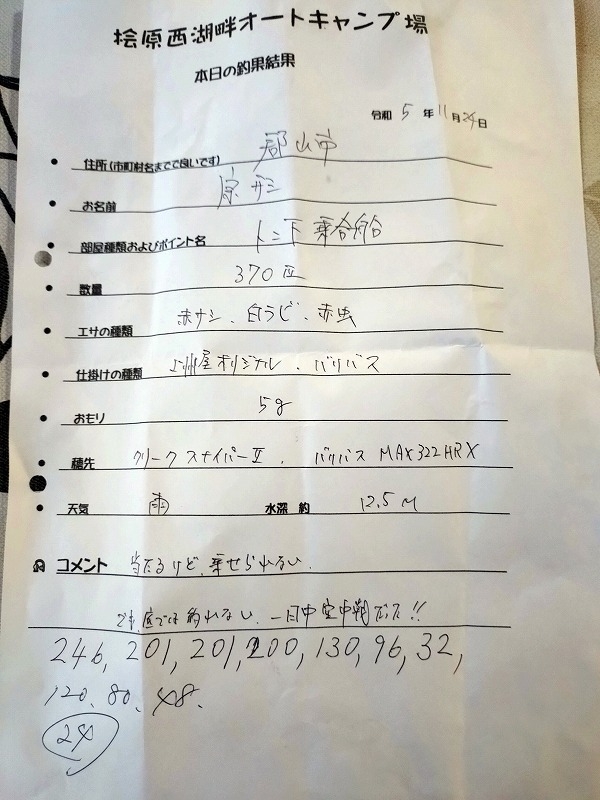 桧原西湖畔オートキャンプ場
本日の釣果結果
令和 5 年 11 月 24 日
住所(市町村名までで良いです) 郡山市
お名前
部屋種類およびポイント名 トニ下 乗合船
数量 370匹
エサの種類 赤サシ、白ラビ、赤虫
仕掛けの種類 上州屋オリジナル、バリバス
おもり 5g
穂先 クリークスナイパーⅡ、バリバス MAX322HRX
天気 雨 水深 約 12.5 M
コメント 当たるけど、乗せられない。
でも、底では釣れない、一日中空中戦だった!!
246, 201, 201, 200, 130, 96, 32,
120、80、48、
24